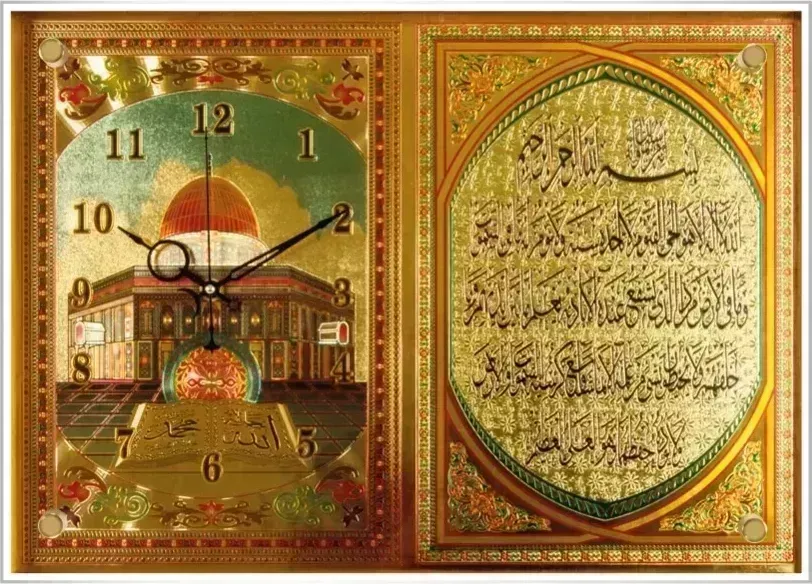 12
11
1
10
2
9
3
8
4
7
محمد
الله
5
6
بسم الله الرحمن الرحيم
الله لا اله الا هو الحي القيوم لا تاخذه سنة ولا نوم له ما في السموات
وما في الارض من ذا الذي يشفع عنده الا باذنه يعلم ما بين ايديهم وما
خلفهم ولا يحيطون بشيء من علمه الا بما شاء وسع كرسيه السموات والارض
ولا يؤده حفظهما وهو العلي العظيم